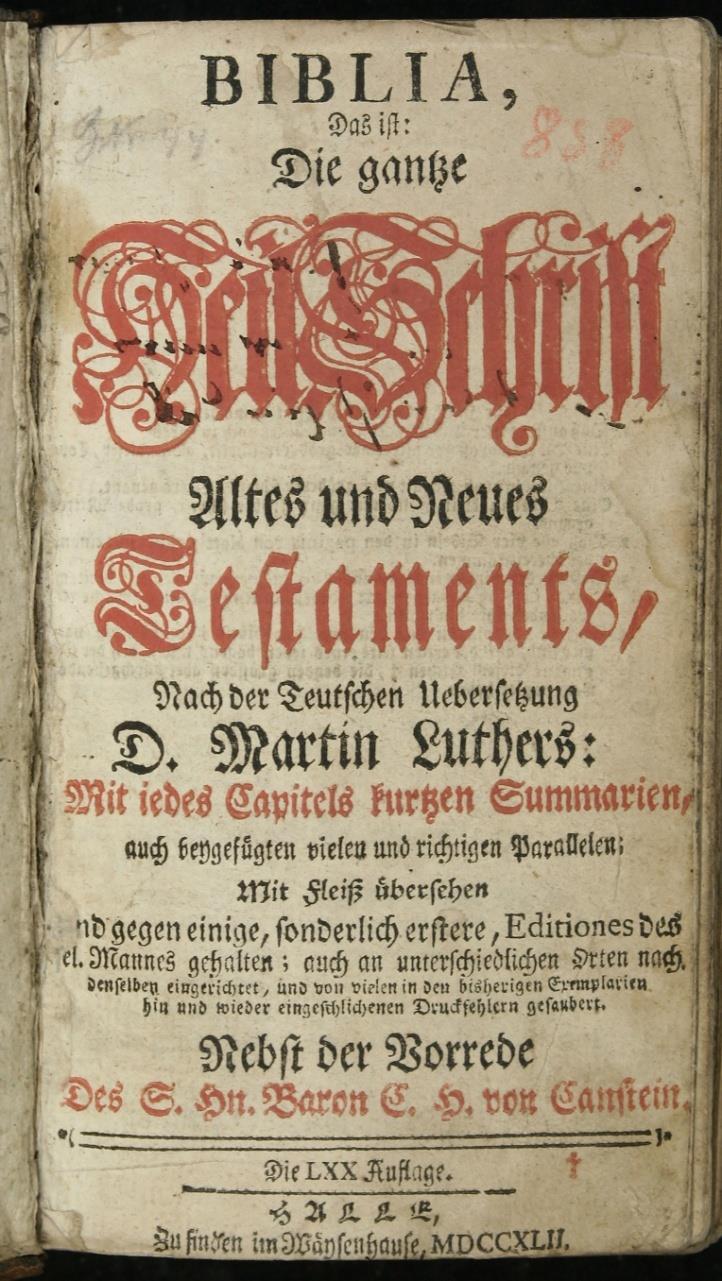 BIBLIA,
Das ist:
Die gantze
Heil. Schrifft
Altes und Neues
Testaments,
Nach der Teutschen Uebersetzung
D. Martin Luthers:
Mit iedes Capitels kurtzen Summarien,
auch beygefügten vielen und richtigen Parallelen;
Mit Fleiß übersehen
nd gegen einige, sonderlich erstere, Editiones des
el. Mannes gehalten; auch an unterschiedlichen Orten nach
denselben eingerichtet, und von vielen in den bisherigen Exemplarien
hin und wieder eingeschlichenen Druckfehlern gesaubert.
Nebst der Vorrede
Des S. Hn. Baron C. H. von Canstein.
Die LXX Auflage.
HALLE,
Zu finden im Wäysenhause, MDCCXLII.